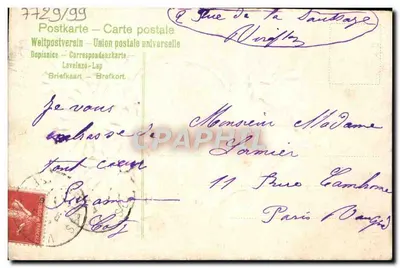 7729/99
Rue de la
Viroflay
Postkarte — Carte postale
Weltpostverein — Union postale universelle
Dopisnice — Correspondenzkarte
Levelező-Lap
Briefkaart — Brefkort.
Je vous
embrasse de
tout cœur
Suzanne
Monsieur Madame
11 Rue Cambronne
Paris Vaugirard
CPAPHIL